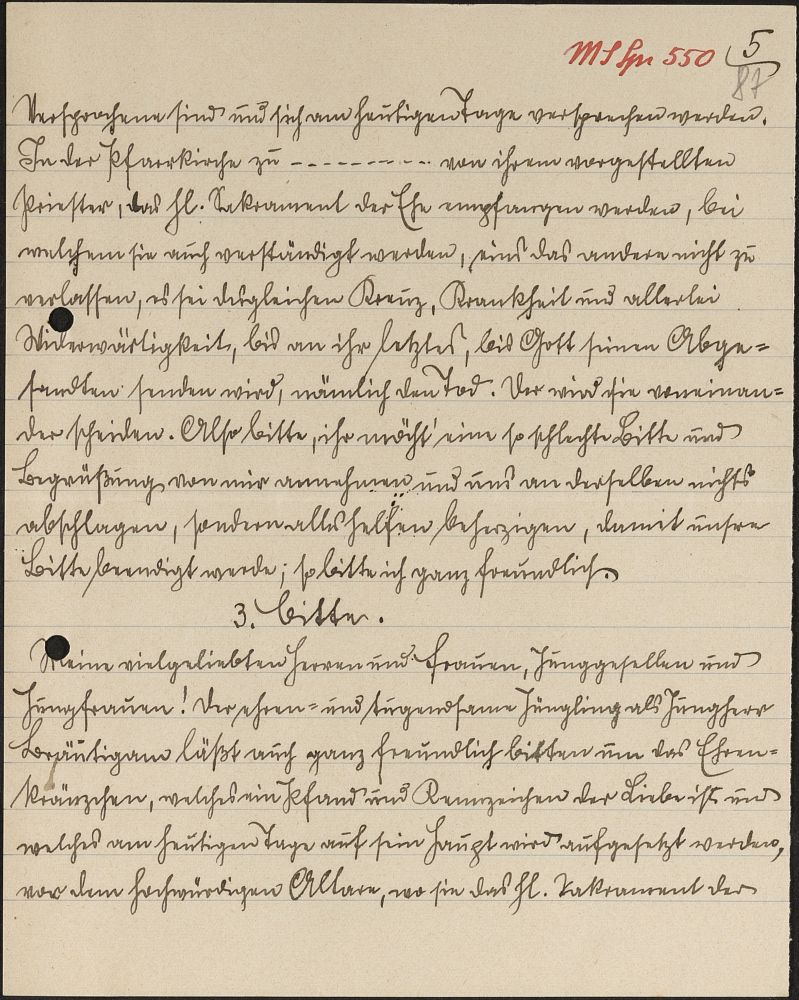 MS Spr 550 5
87
Versprochene sind und sich am heutigen Tage versprechen werden.
In der Pfarrkirche zu ---------- von ihrem vorgestellten
Priester, das hl. Sakrament der Ehe empfangen werden, bei
welchem sie auch verständigt werden, eins das andere nicht zu
verlassen, es sei desgleichen Kreuz, Krankheit und allerlei
Widerwärtigkeit, bis an ihr letztes, bis Gott seinen Abge=
sandten senden wird, nämlich den Tod. Der wird sie voneinan=
der scheiden. Also bitte, ihr möcht' eine so schlechte Bitte und
Begrüßung von mir annehmen und uns an derselben nichts
abschlagen, sondern alls helfen beherzigen, damit unsre
Bitte beendigt werde; so bitte ich ganz freundlich.
3. Bitte.
Meine vielgeliebten Herren und Frauen, Junggesellen und
Jungfrauen! Der ehren= und tugendsame Jüngling als Jungherr
Bräutigam läßt auch ganz freundlich bitten um das Ehren=
kränzchen, welches ein Pfand und Kennzeichen der Liebe ist und
welches am heutigen Tage auf sein Haupt wird aufgesetzt werden,
vor dem hochwürdigen Altare, wo sie das hl. Sakrament der